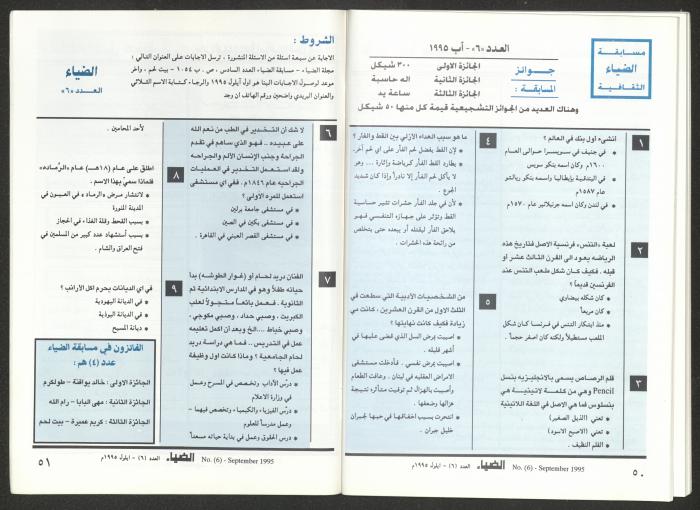 مسابقة
الضياء
الثقافية
العدد «٦» - أب ١٩٩٥
جوائز
المسابقة :
الجائزة الاولى ٣٠٠ شيكل
الجائزة الثانية اله حاسبة
الجائزة الثالثة ساعة يد
وهناك العديد من الجوائز التشجيعية قيمة كل منها ٥٠ شيكل
١
انشيء اول بنك في العالم ؟
• في جنيف في سويسرا حوالى العام
١٦٠٠م وكان اسمه بنكو سريس
• في البندقية وإيطاليا واسمه بنكو ريالتو
عام ١٥٨٧م
• في لندن وكان اسمه جرنيلاتير عام ١٥٧٠م
٢
لعبة «التنس» فرنسية الاصل فتاريخ هذه
الرياضه يعود الى القرن الثالث عشر أو
قبله . فكيف كان شكل ملعب التنس عند
الفرنسين قديماً ؟
• كان شكله بيضاوي
• كان مربعاً
• منذ ابتكار التنس في فرنسا كان شكل
الملعب مستطيلاً ولكنه كان اصفر حجماً .
٣
قلم الرصاص يسمى بالانجليزيه بنسل
Pencil وهي من كلمة لاتينية هي
بنسلوس فما هي الاصل في اللغة اللاتينية
• تعني (الذيل الصغير)
• تعني (الاصبع الاسود)
• القلم النظيف .
٤
ما هو سبب العداء الازلي بين القط والفأر ؟
• لإن القط يفضل لحم الفأر على اي لحم آخر .
• يطارد القط الفأر كرياضة وإثارة ... وهو
لا يأكل لحم الفأر إلا نادراً وإذا كان شديد
الجوع .
• لأن في جلد الفأر حشرات تثير حساسية
القط وتؤثر على جهازه التنفسي فهو
يلاحق الفأر ليقتله أو يبعده حتى يتخلص
من رائحة هذه الحشرات .
٥
من الشخصيات الأدبية التي سطعت في
الثلث الاول من القرن العشرين ، كانت مي
زيادة فكيف كانت نهايتها ؟
• اصيبت بمرض السل الذي قضى عليها في
أشهر قليله .
• اصيبت بمرض نفسي . فأدخلت مستشفى
الامراض العقليه في لبنان . وعافت الطعام
وأصيبت بالهزال ثم توفيت متأثرة نتيجة
هزالها وضعفها .
• انتحرت بسبب اخفاقها في حبها لجبران
خليل جبران .
العدد (٦) - ايلول ١٩٩٥م الضياء No. (6) - September 1995
٥٠
الشروط :
الاجابة عن سبعة اسئلة من الاسئلة المنشورة ، ترسل الاجابات على العنوان التالي :
مجلة الضياء - مسابقة الضياء العدد السادس . ص . ب ١٠٥٤ - بيت لحم . وآخر
موعد لوصول الاجابات الينا هو اول أيلول ١٩٩٥ والرجاء كتابة الاسم الثلاثي
والعنوان البريدي واضحين ورقم الهاتف ان وجد
الضياء
العدد «٦»
٦
لا شك أن التخدير في الطب من نعم الله
على عبيده .. فهو الذي ساهم في تقدم
الجراحة وجنب الإنسان الألم والجراحه
ولقد استعمل التخدير في العمليات
الجراحيه عام ١٨٤٦م . ففي اي مستشفى
استعمل للمره الأولى ؟
• في مستشفى جامعة برلين
• في مستشفى بكين في الصين
• في مستشفى القصر العيني في القاهرة .
٧
الفنان دريد لحام أو (غوار الطوشه) بدأ
حياته طفلاً وهو في المدارس الابتدائية ثم
الثانوية . فعمل بائعاً متجولاً لعلب
الكبريت ، وصبي حداد ، وصبي مكوجي .
وصبي خياط ....الخ وبعد أن اكمل تعليمه
عمل في التدريس . فما هي دراسة دريد
لحام الجامعية ؟ وماذا كانت اول وظيفة
عمل فيها ؟
• درس الآداب وتخصص في المسرح وعمل
في وزارة الاعلام
• درس الفيزياء والكيمياء وتخصص فيهما -
وعمل مدرساً للعلوم
• درس الحقوق وعمل في بداية حياته مسعداً
لأحد المحامين .
٨
اطلق على عام (١٨هـ) عام «الرماده»
فلماذا سمي بهذا الاسم .
• لانتشار مرض «الرماد» في العيون في
المدينة المنورة
• بسبب القحط وقلة الغذاء في الحجاز
• بسبب استشهاد عدد كبير من المسلمين في
فتح العراق والشام .
٩
في اي الديانات يحرم اكل الأرانب ؟
• في الديانة اليهودية
• في الديانة البوذية
• ديانة المسيح
الفائزون في مسابقة الضياء
عدد (٤) هم :
الجائزة الاولى : خالد بواقنة - طولكرم
الجائزة الثانية : مهى البابا - رام الله
الجائزة الثالثة : كريم عميرة - بيت لحم
No. (6) - September 1995 الضياء العدد (٦) - ايلول ١٩٩٥م
٥١